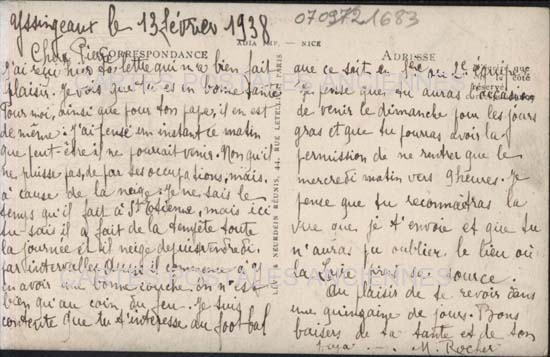 Yssingeaux le 13 février 1938
070972 1683
Cher Pierre
CORRESPONDANCE
ADIA IMP. - NICE
ADRESSE
J'ai reçu hier ta lettre qui m'a bien fait
plaisir. Je vois que tu es en bonne santé
Pour moi, ainsi que pour ton papa, il en est
de même. J'ai pensé un instant ce matin
que peut-être il ne pourrait venir. Non qu'il
ne puisse pas, de par ses occupations, mais
à cause de la neige. Je ne sais le
temps qu'il fait à St Etienne, mais ici
tu sais il a fait de la tempête toute
la journée et il neige depuis vendredi
par intervalles. Aussi il commence à y
en avoir une bonne couche. On n'est
bien qu'au coin du feu. Je suis
contente que tu t'intéresses au football
LEVY & NEURDEIN RÉUNIS, 44, RUE LETELLIER, PARIS
que ce soit en 1ère ou 2e équipe
le côté
réservé
Je pense que tu auras l'occasion
de venir le dimanche pour les jours
gras et que tu pourras avoir la
permission de ne rentrer que le
mercredi matin vers 9 heures. Je
pense que tu reconnaîtras la
vue que je t'envoie et que tu
n'auras pu oublier le lieu où
la Loire prend sa source.
Au plaisir de te revoir dans
une quinzaine de jours. Bons
baisers de ta tante et de ton
papa. M. Rocher
CARTES POSTALES ANCIENNES
CARTES POSTALES ANCIENNES